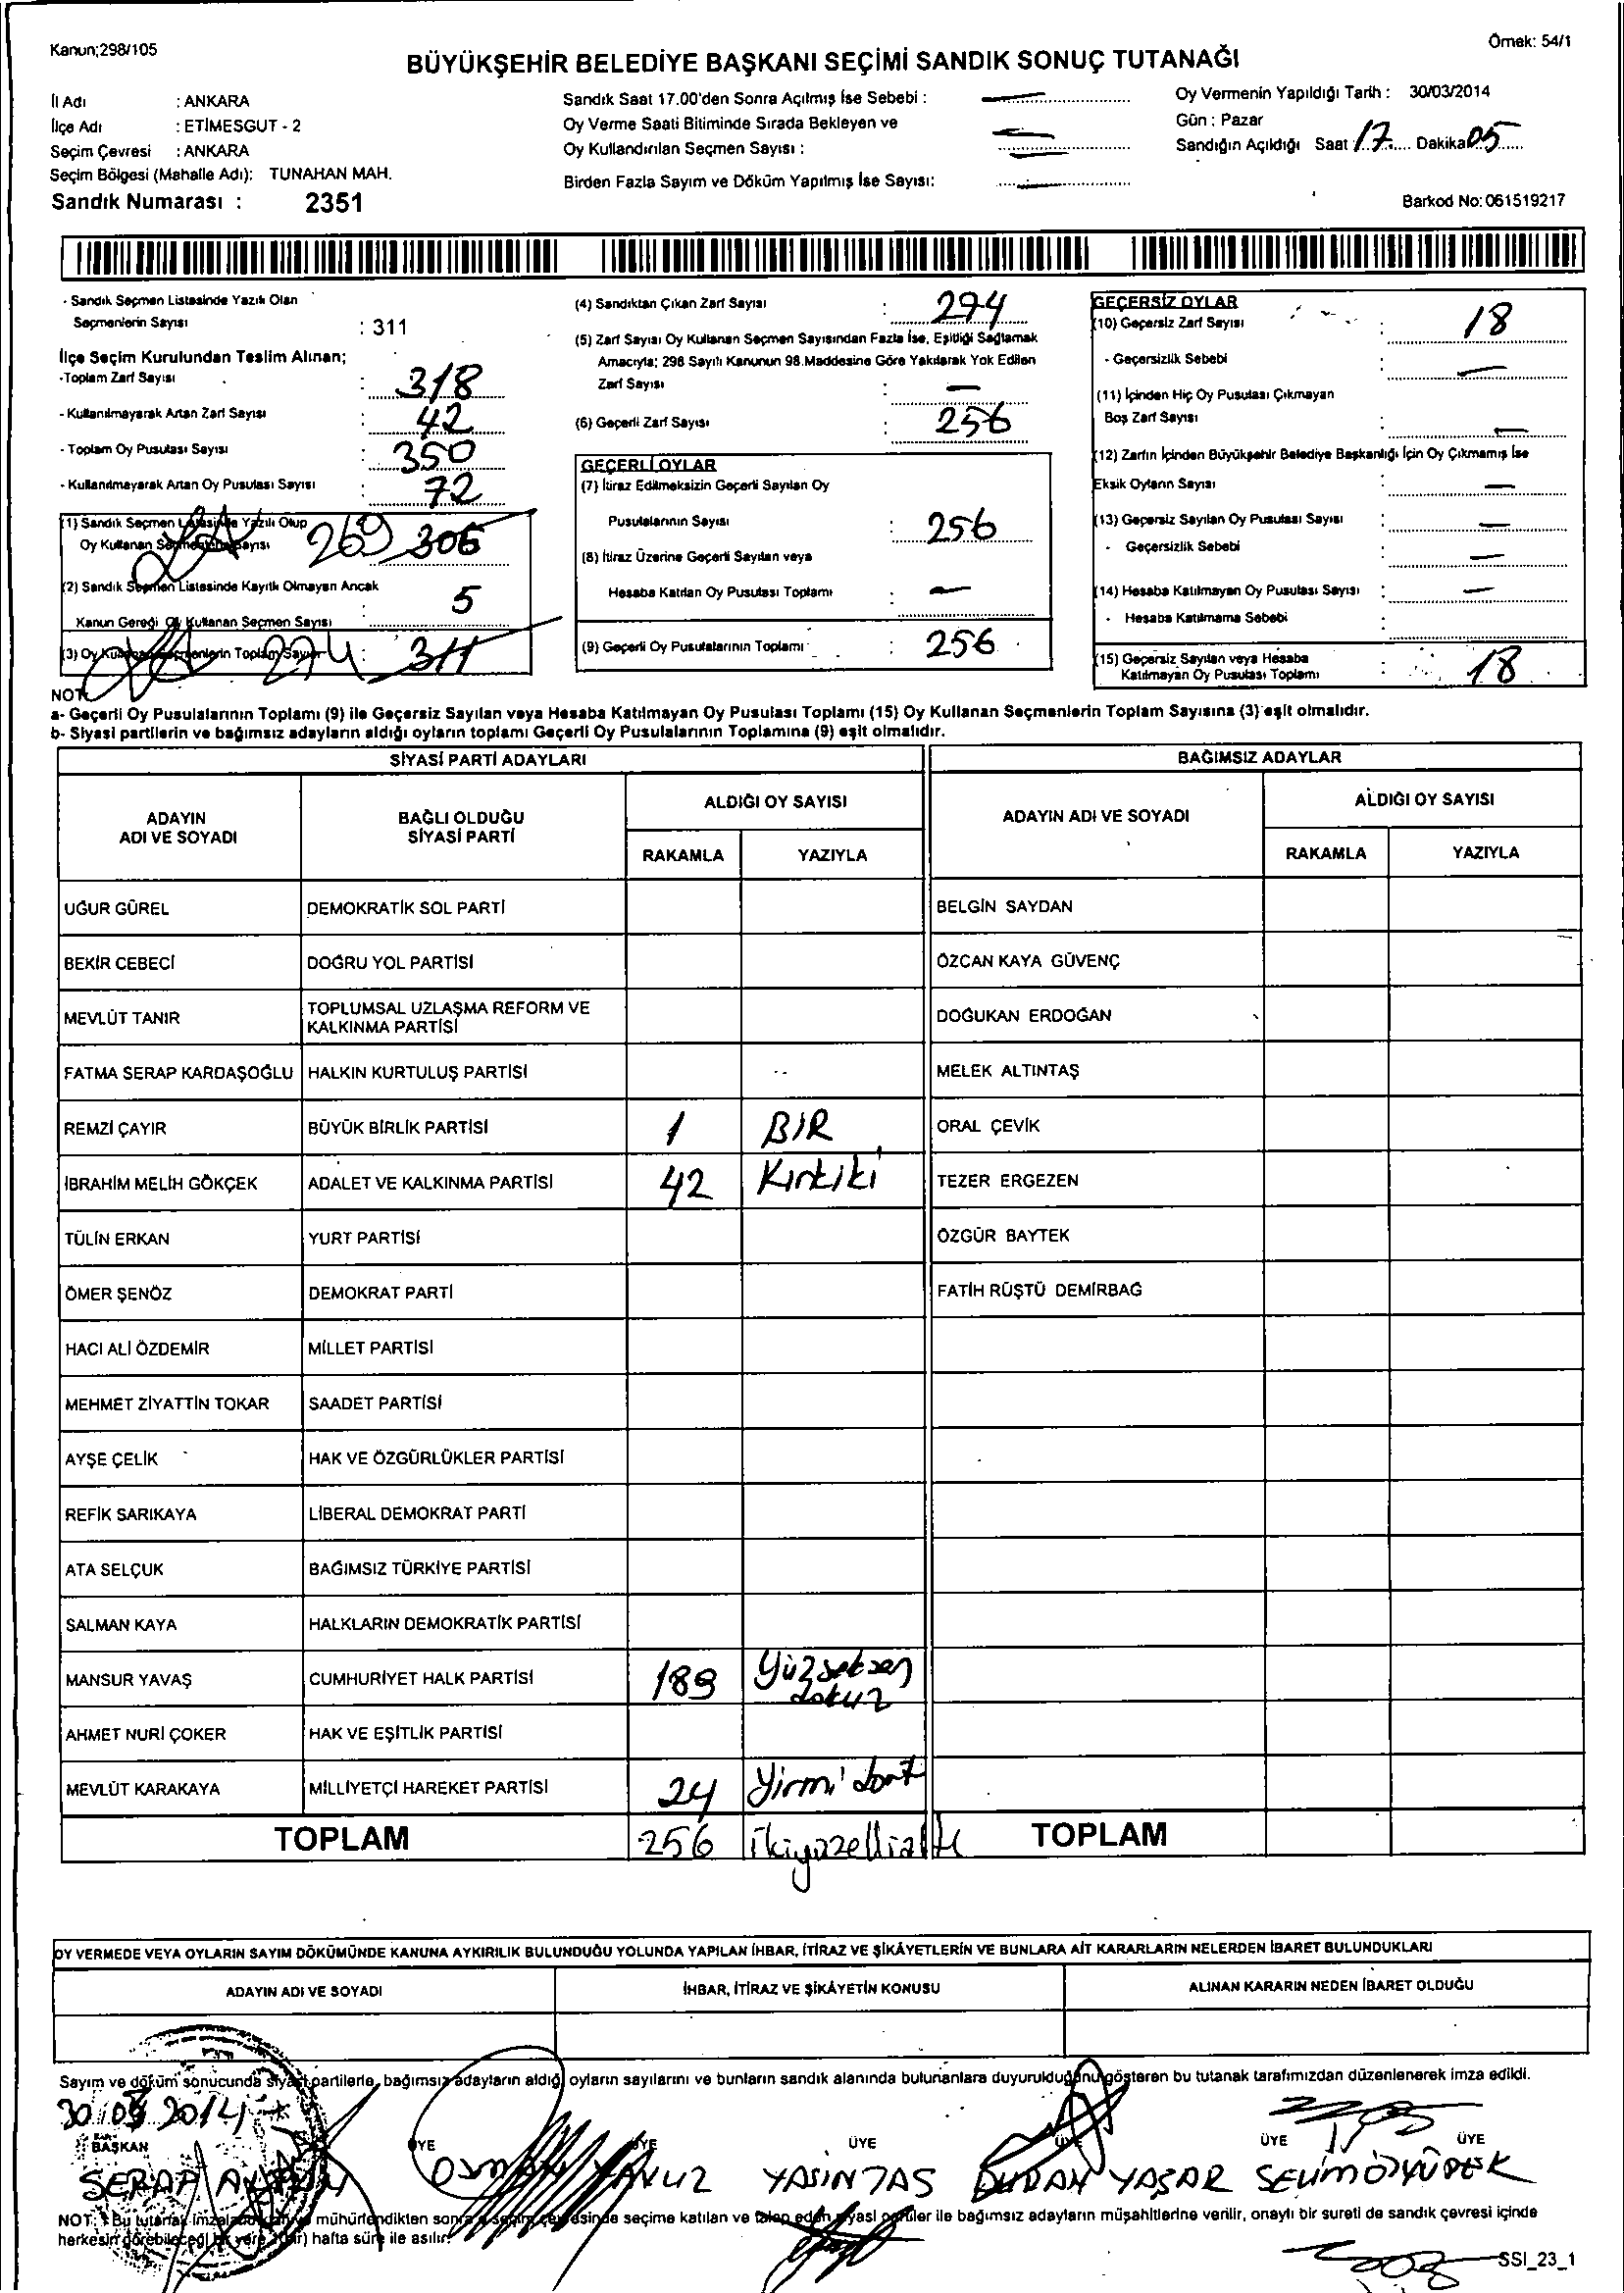 Kanun;298/105
Örnek: 54/1
BÜYÜKŞEHİR BELEDİYE BAŞKANI SEÇİMİ SANDIK SONUÇ TUTANAĞI
İl Adı : ANKARA
İlçe Adı : ETİMESGUT - 2
Seçim Çevresi : ANKARA
Seçim Bölgesi (Mahalle Adı): TUNAHAN MAH.
Sandık Numarası : 2351
Sandık Saat 17.00'den Sonra Açılmış İse Sebebi :
Oy Verme Saati Bitiminde Sırada Bekleyen ve
Oy Kullandırılan Seçmen Sayısı :
Birden Fazla Sayım ve Döküm Yapılmış İse Sayısı:
Oy Vermenin Yapıldığı Tarih : 30/03/2014
Gün : Pazar
Sandığın Açıldığı Saat 17 Dakika 05
Barkod No: 061519217
- Sandık Seçmen Listesinde Yazılı Olan
Seçmenlerin Sayısı : 311
İlçe Seçim Kurulundan Teslim Alınan;
-Toplam Zarf Sayısı : 318
- Kullanılmayarak Artan Zarf Sayısı : 42
- Toplam Oy Pusulası Sayısı : 350
- Kullanılmayarak Artan Oy Pusulası Sayısı : 72
(1) Sandık Seçmen Listesinde Yazılı Olup
Oy Kullanan Seçmenlerin Sayısı 269 306
(2) Sandık Seçmen Listesinde Kayıtlı Olmayan Ancak
Kanun Gereği Oy Kullanan Seçmen Sayısı : 5
(3) Oy Kullanan Seçmenlerin Toplam Sayısı 274 : 311
(4) Sandıktan Çıkan Zarf Sayısı : 274
(5) Zarf Sayısı Oy Kullanan Seçmen Sayısından Fazla İse, Eşitliği Sağlamak
Amacıyla; 298 Sayılı Kanunun 98.Maddesine Göre Yakılarak Yok Edilen
Zarf Sayısı : —
(6) Geçerli Zarf Sayısı : 256
GEÇERLİ OYLAR
(7) İtiraz Edilmeksizin Geçerli Sayılan Oy
Pusulalarının Sayısı : 256
(8) İtiraz Üzerine Geçerli Sayılan veya
Hesaba Katılan Oy Pusulası Toplamı : —
(9) Geçerli Oy Pusulalarının Toplamı : 256
GEÇERSİZ OYLAR
(10) Geçersiz Zarf Sayısı : 18
- Geçersizlik Sebebi —
(11) İçinden Hiç Oy Pusulası Çıkmayan
Boş Zarf Sayısı : —
(12) Zarfın İçinden Büyükşehir Belediye Başkanlığı İçin Oy Çıkmamış İse
Eksik Oyların Sayısı : —
(13) Geçersiz Sayılan Oy Pusulası Sayısı : —
- Geçersizlik Sebebi —
(14) Hesaba Katılmayan Oy Pusulası Sayısı : —
- Hesaba Katılmama Sebebi
(15) Geçersiz Sayılan veya Hesaba
Katılmayan Oy Pusulası Toplamı : 18
NOT:
a- Geçerli Oy Pusulalarının Toplamı (9) ile Geçersiz Sayılan veya Hesaba Katılmayan Oy Pusulası Toplamı (15) Oy Kullanan Seçmenlerin Toplam Sayısına (3) eşit olmalıdır.
b- Siyasi partilerin ve bağımsız adayların aldığı oyların toplamı Geçerli Oy Pusulalarının Toplamına (9) eşit olmalıdır.
SİYASİ PARTİ ADAYLARI
ADAYIN ADI VE SOYADI
BAĞLI OLDUĞU SİYASİ PARTİ
ALDIĞI OY SAYISI
RAKAMLA YAZIYLA
UĞUR GÜREL DEMOKRATİK SOL PARTİ
BEKİR CEBECİ DOĞRU YOL PARTİSİ
MEVLÜT TANIR TOPLUMSAL UZLAŞMA REFORM VE KALKINMA PARTİSİ
FATMA SERAP KARDAŞOĞLU HALKIN KURTULUŞ PARTİSİ
REMZİ ÇAYIR BÜYÜK BİRLİK PARTİSİ 1 BİR
İBRAHİM MELİH GÖKÇEK ADALET VE KALKINMA PARTİSİ 42 Kırkiki
TÜLİN ERKAN YURT PARTİSİ
ÖMER ŞENÖZ DEMOKRAT PARTİ
HACI ALİ ÖZDEMİR MİLLET PARTİSİ
MEHMET ZİYATTİN TOKAR SAADET PARTİSİ
AYŞE ÇELİK HAK VE ÖZGÜRLÜKLER PARTİSİ
REFİK SARIKAYA LİBERAL DEMOKRAT PARTİ
ATA SELÇUK BAĞIMSIZ TÜRKİYE PARTİSİ
SALMAN KAYA HALKLARIN DEMOKRATİK PARTİSİ
MANSUR YAVAŞ CUMHURİYET HALK PARTİSİ 189 Yüzseksen dokuz
AHMET NURİ ÇOKER HAK VE EŞİTLİK PARTİSİ
MEVLÜT KARAKAYA MİLLİYETÇİ HAREKET PARTİSİ 24 Yirmi dört
TOPLAM 256 İkiyüzellialtı
BAĞIMSIZ ADAYLAR
ADAYIN ADI VE SOYADI
ALDIĞI OY SAYISI
RAKAMLA YAZIYLA
BELGİN SAYDAN
ÖZCAN KAYA GÜVENÇ
DOĞUKAN ERDOĞAN
MELEK ALTINTAŞ
ORAL ÇEVİK
TEZER ERGEZEN
ÖZGÜR BAYTEK
FATİH RÜŞTÜ DEMİRBAĞ
TOPLAM
OY VERMEDE VEYA OYLARIN SAYIM DÖKÜMÜNDE KANUNA AYKIRILIK BULUNDUĞU YOLUNDA YAPILAN İHBAR, İTİRAZ VE ŞİKÂYETLERİN VE BUNLARA AİT KARARLARIN NELERDEN İBARET BULUNDUKLARI
ADAYIN ADI VE SOYADI İHBAR, İTİRAZ VE ŞİKÂYETİN KONUSU ALINAN KARARIN NEDEN İBARET OLDUĞU
Sayım ve döküm sonucunda siyasi partilerle, bağımsız adayların aldığı oyların sayılarını ve bunların sandık alanında bulunanlara duyurulduğunu gösteren bu tutanak tarafımızdan düzenlenerek imza edildi.
30/03/2014
BAŞKAN ÜYE ÜYE ÜYE ÜYE ÜYE ÜYE
SERAP OSMAN YAVUZ YASIN TAS DURAN YAŞAR SELİM
NOT: Bu tutanak imzalanıp ve mühürlendikten sonra seçim çevresinde seçime katılan ve talep eden siyasi partiler ile bağımsız adayların müşahitlerine verilir, onaylı bir sureti de sandık çevresi içinde
herkesin görebileceği bir yere (bir) hafta süre ile asılır.
SSI_23_1